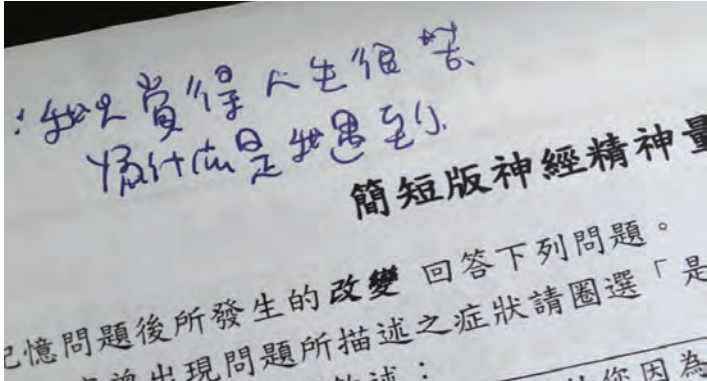 ：我只覺得人生很苦
為什麼是我遇到
簡短版神經精神量
記憶問題後所發生的改變 回答下列問題。
出現問題所描述之症狀請圈選「是
述：
您因為